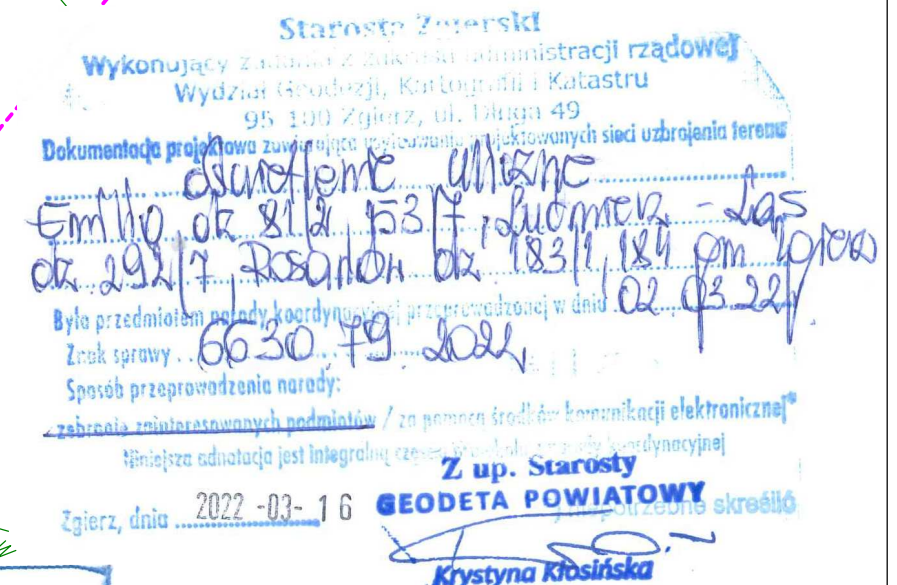 Starosta Zgierski
Wykonujący zadania z zakresu administracji rządowej
Wydział Geodezji, Kartografii i Katastru
95-100 Zgierz, ul. Długa 49
Dokumentacja projektowa zawierająca usytuowanie projektowanych sieci uzbrojenia terenu
oświetlenie uliczne
Emilia, dz 81/2, 153/7, Lućmierz - Las
dz. 292/7, Rosanów dz 183/1, 184 gm Zgierz
Była przedmiotem narady koordynacyjnej przeprowadzonej w dniu 02.03.22
Znak sprawy .. 6630.79.2022
Sposób przeprowadzenia narady:
zebranie zainteresowanych podmiotów / za pomocą środków komunikacji elektronicznej*
Niniejsza adnotacja jest integralną częścią protokołu z narady koordynacyjnej
Z up. Starosty
GEODETA POWIATOWY
Zgierz, dnia 2022 -03- 16
niepotrzebne skreślić
Krystyna Kłosińska